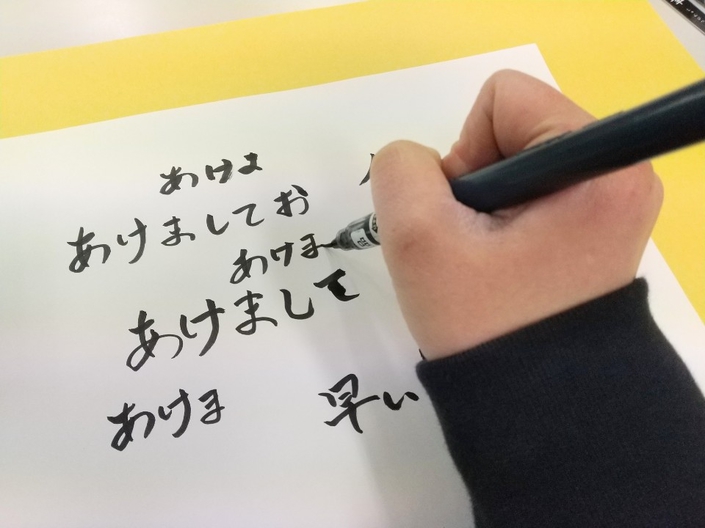 あけま
あけましてお
あけま
あけまして
あけま
早い